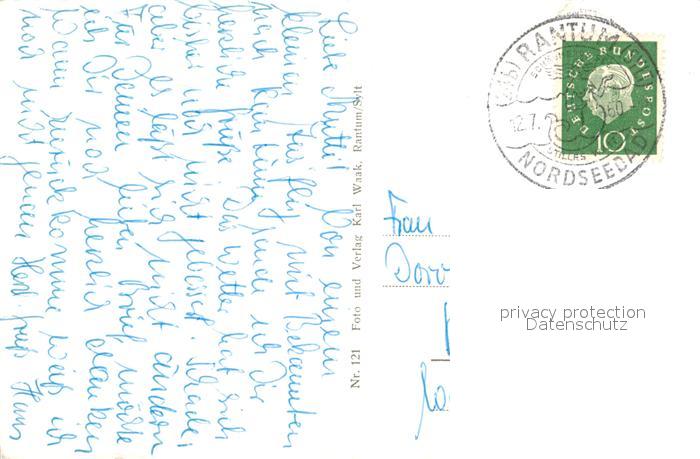 Liebe Mutti! Von einem
kleinen Ausflug mit Bekannten
nach Rantum sende ich Dir
herzliche Grüße. Das Wetter hat sich
bisher noch nicht gebessert. Schade
aber es läßt sich nicht ändern.
Für Deinen lieben Brief möchte
ich Dir noch herzlich danken.
Wann zurückkomme weiß ich
noch nicht genau. Herzl. Gruß Hans
Nr. 121 Foto und Verlag Karl Waak, Rantum/Sylt
(24b) RANTUM
12.7.
NORDSEEBAD
DEUTSCHE BUNDESPOST
10
Frau
privacy protection
Datenschutz